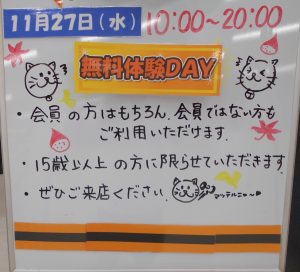 11月27日(水) 10:00~20:00
無料体験DAY
・会員の方はもちろん、会員ではない方も
ご利用いただけます.
・15歳以上の方に限らせていただきます.
・ぜひご来店ください. マッテルニャ~